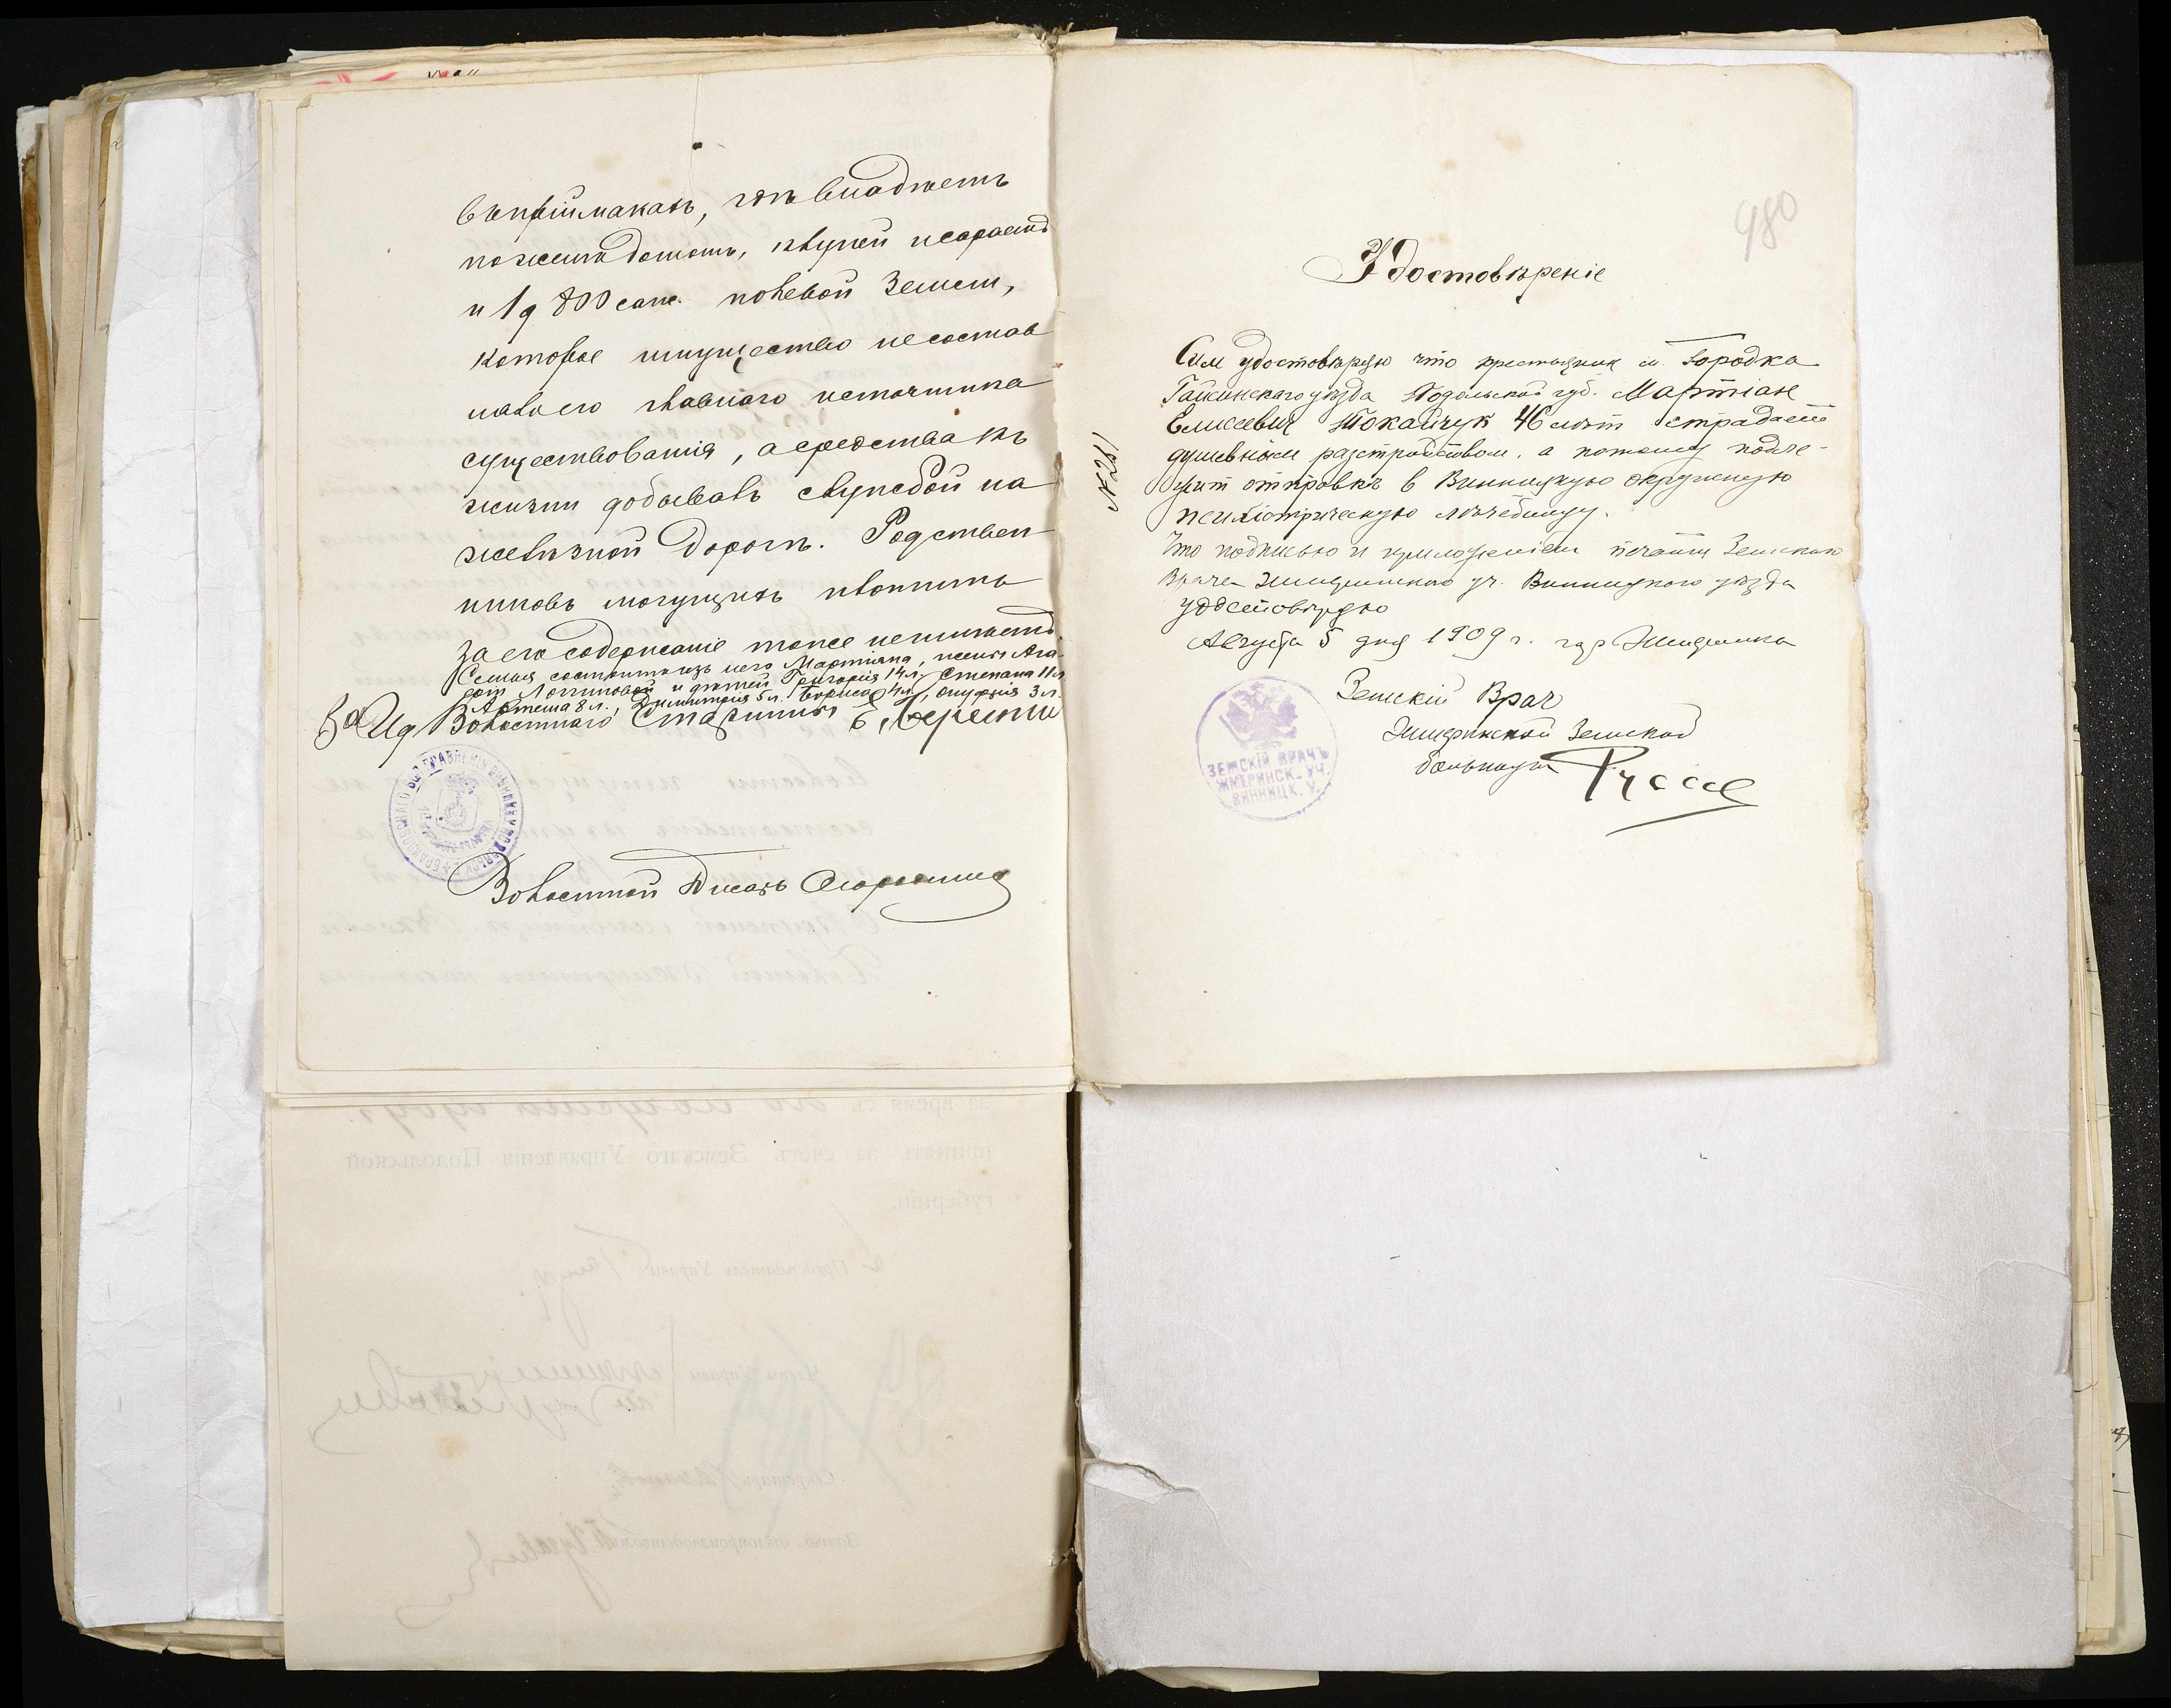 въ пріймакахъ, гдѣ владѣетъ
пожена домомъ, клуней и сараемъ
и 1 д 800 саж. полевой земли,
которое имущество несостав
ляло его главнаго источника
существованія, а средства къ
жизни добывалъ службой на
желѣзной дорогѣ. Родствен
никовъ могущихъ платить
за его содержаніе тоже неимѣетъ
Семья состоитъ изъ него Мартіяна, жены Ага
Логгиновой и дѣтей Григорія 14 л, Степана 11 л
Артема 8 л., Димитрія 5 л. Бориса 4 л, Онуфрія 3 л.
За Волостнаго Старшины
Волостной Писарь
480
Удостовѣреніе
№ 261
Сим удостовѣряю что крестьянин м. Городка
Гайсинскаго уѣзда Подольской губ. Мартіан
Елисеевич Токайчук 46 лѣт страдает
душевным разстройством, а потому подле-
жит отправкѣ в Винницкую окружную
психіатрическую лѣчебницу.
Что подписью и приложеніем печати Земскаго
Врача Жмеринскаго уч. Винницкого уѣзда
удостовѣряю
Августа 5 дня 1909 г. гор Жмеринка
Земскій Врач
Жмеринской Земской
больницы
ЗЕМСКІЙ ВРАЧЪ
ЖМЕРИНСК. УЧ.
ВИННИЦК. У.
за время съ
принять на счетъ Земскаго Управленія Подольской
губерніи.